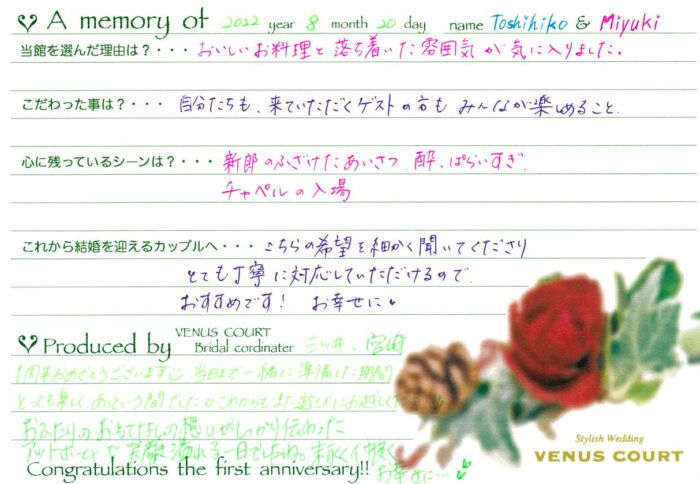 A memory of 2022 year 8 month 20 day name Toshihiko & Miyuki
当館を選んだ理由は?・・・ おいしいお料理と落ち着いた雰囲気が気に入りました。
こだわった事は?・・・ 自分たちも、来ていただくゲストの方もみんなが楽しめること。
心に残っているシーンは?・・・ 新郎のふざけたあいさつ 酔っぱらいすぎ
チャペルの入場
これから結婚を迎えるカップルへ・・・ こちらの希望を細かく聞いてくださり
とても丁寧に対応していただけるので
おすすめです! お幸せに♥
VENUS COURT
Produced by Bridal cordinater 三ツ井、宮崎
1周年おめでとうございます 当日まで一緒に準備した期間
とっても楽しく、あっという間でした これからもまた遊びにお越し
おふたりのおもてなしの想いがしっかり伝わった
アットホームで笑顔溢れる一日でしたね。末永く仲良く
Congratulations the first anniversary!! お幸せに…
Stylish Wedding
VENUS COURT